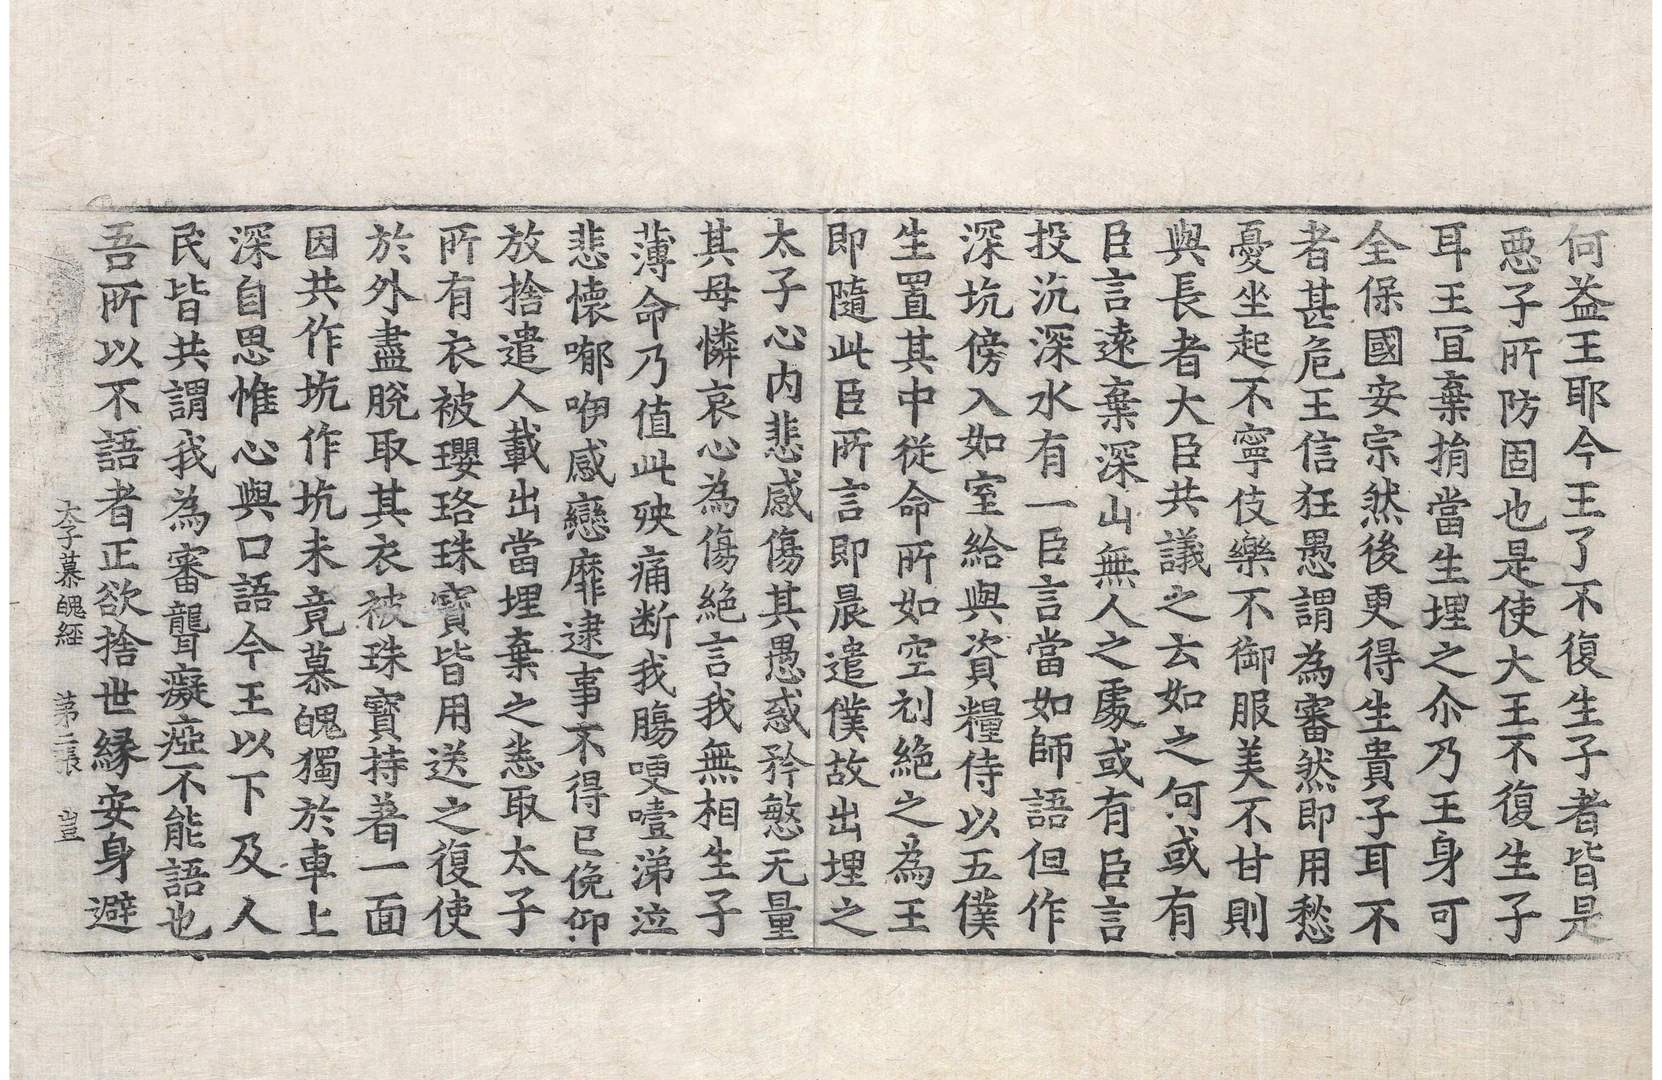 何益王耶今王了不復生子者皆是
惡子所防固也是使大王不復生子
耳王冝棄捐當生埋之尒乃王身可
全保國安宗然後更得生貴子耳不
者甚危王信狂愚謂為審然即用愁
憂坐起不寧伎樂不御服美不甘則
與長者大臣共議之云如之何或有
臣言遠棄深山無人之處或有臣言
投沉深水有一臣言當如師語但作
深坑傍入如室給與資糧侍以五僕
生置其中從命所如空刾絶之為王
即隨此臣所言即晨遣僕故出埋之
太子心內悲感傷其愚惑矜愍无量
其母憐哀心為傷絶言我無相生子
薄命乃值此殃痛断我膓哽噎涕泣
悲懷啷咿感戀靡逮事不得已俛仰
放捨遣人載出當埋棄之悉取太子
所有衣被瓔珞珠寶皆用送之復使
於外盡脫取其衣被珠寶持着一面
因共作坑作坑未竟慕魄獨於車上
深自思惟心與口語今王以下及人
民皆共謂我為審聾癡瘂不能語也
吾所以不語者正欲捨世縁安身避
太子慕魄經 苐二張 豈